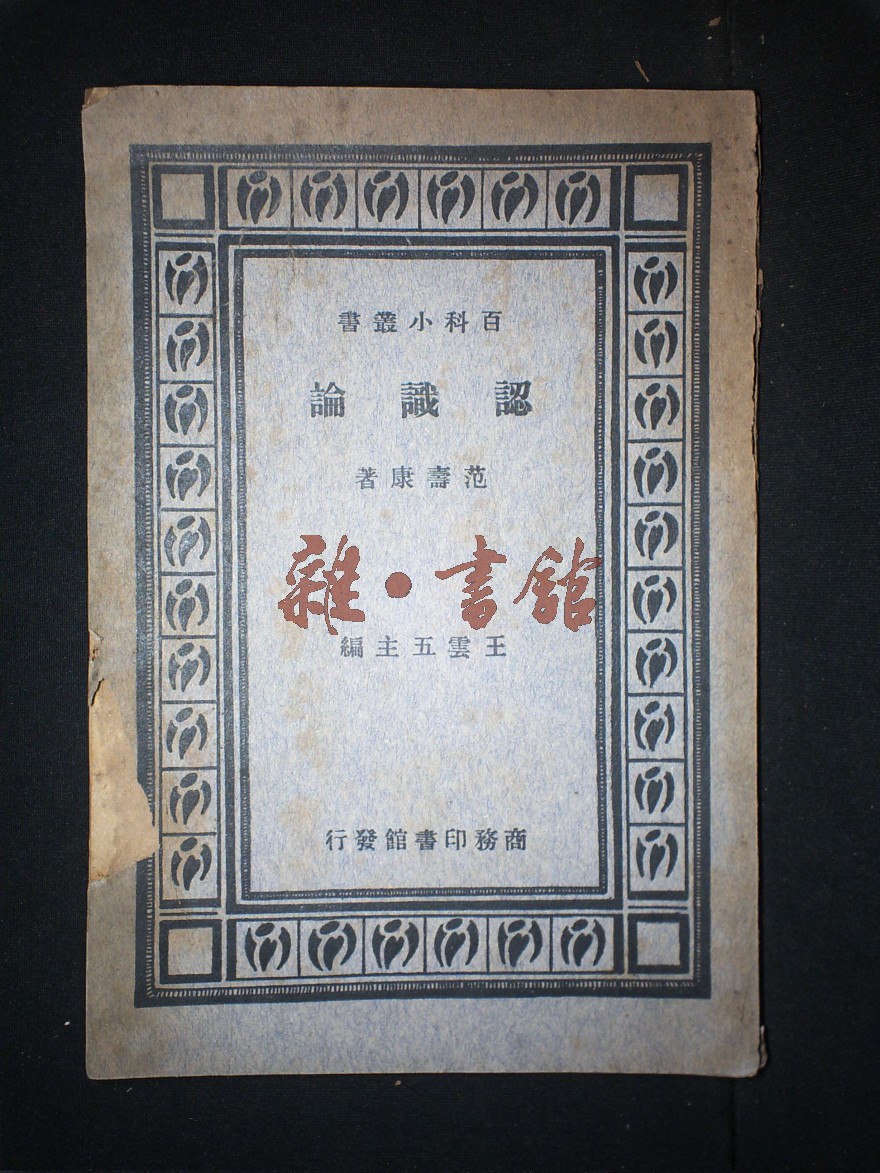 百科小叢書
認識論
范壽康著
雜·書館
王雲五主編
商務印書館發行